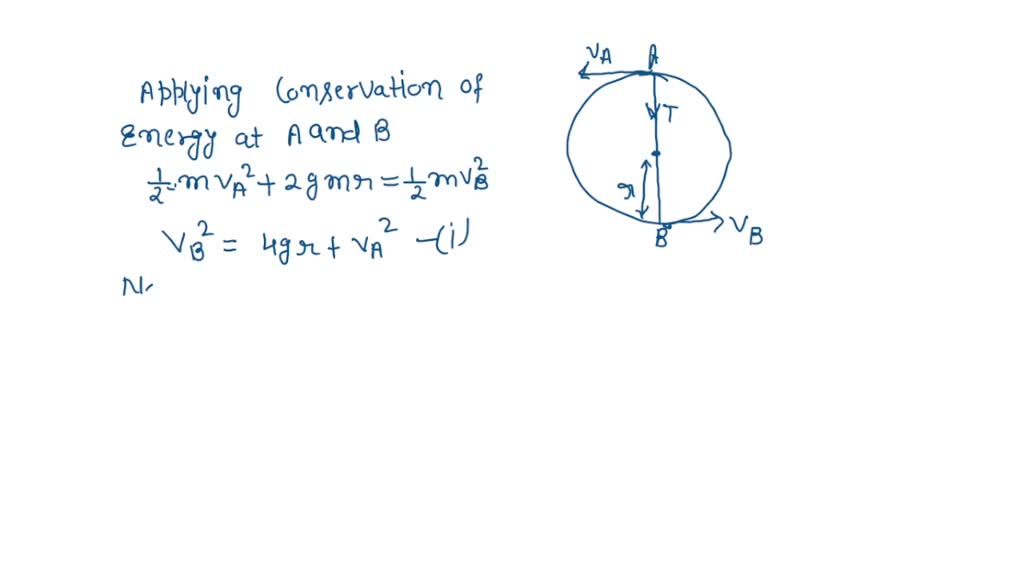 Applying Conservation of
Energy at A and B
½ m v_A² + 2gmr = ½ m v_B²
V_B² = 4gr + v_A² -(i)
v_A
A
T
r
B
V_B